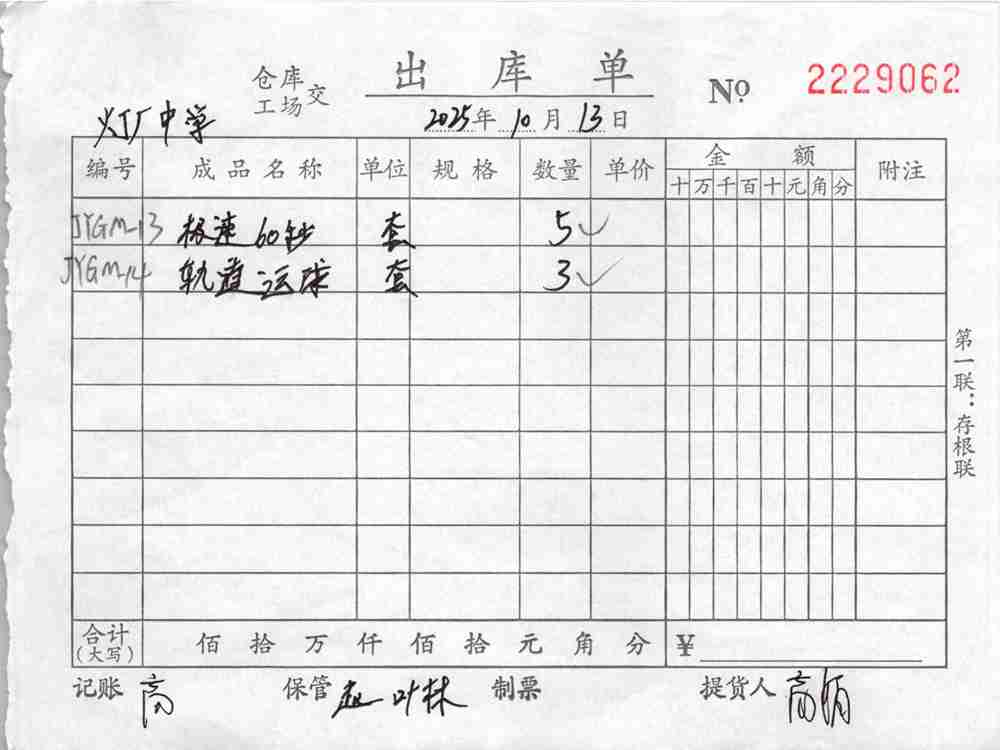 仓库
工场 交 出库单 № 2229062
灯厂中学 2025年10月13日
编号 成品名称 单位 规格 数量 单价 金额 附注
十 万 千 百 十 元 角 分
JYGM-13 极速60秒 套 5✓
JYGM-14 轨道运球 套 3✓
合计
(大写) 佰 拾 万 仟 佰 拾 元 角 分 ¥
记账 高 保管 赵叶林 制票 提货人 高
第一联：存根联